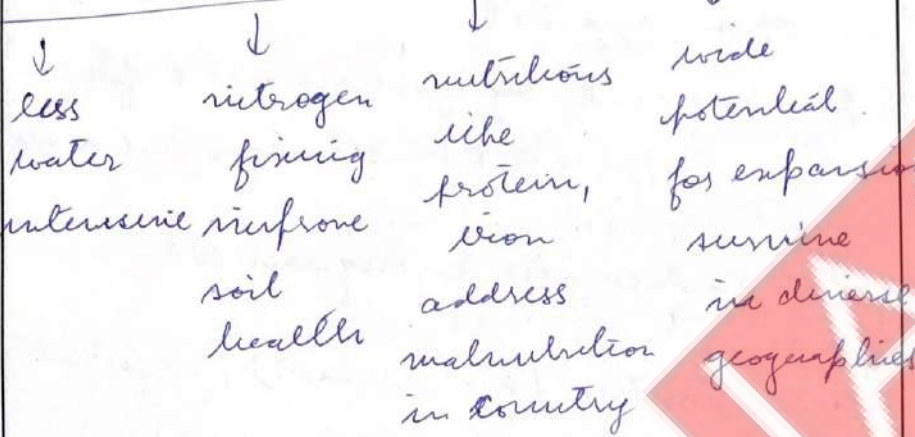 less
water
intensive
nitrogen
fixing
improve
soil
health
nutritious
like
protein,
iron
address
malnutrition
in country
wide
potential
for expansion
survive
in diverse
geographies